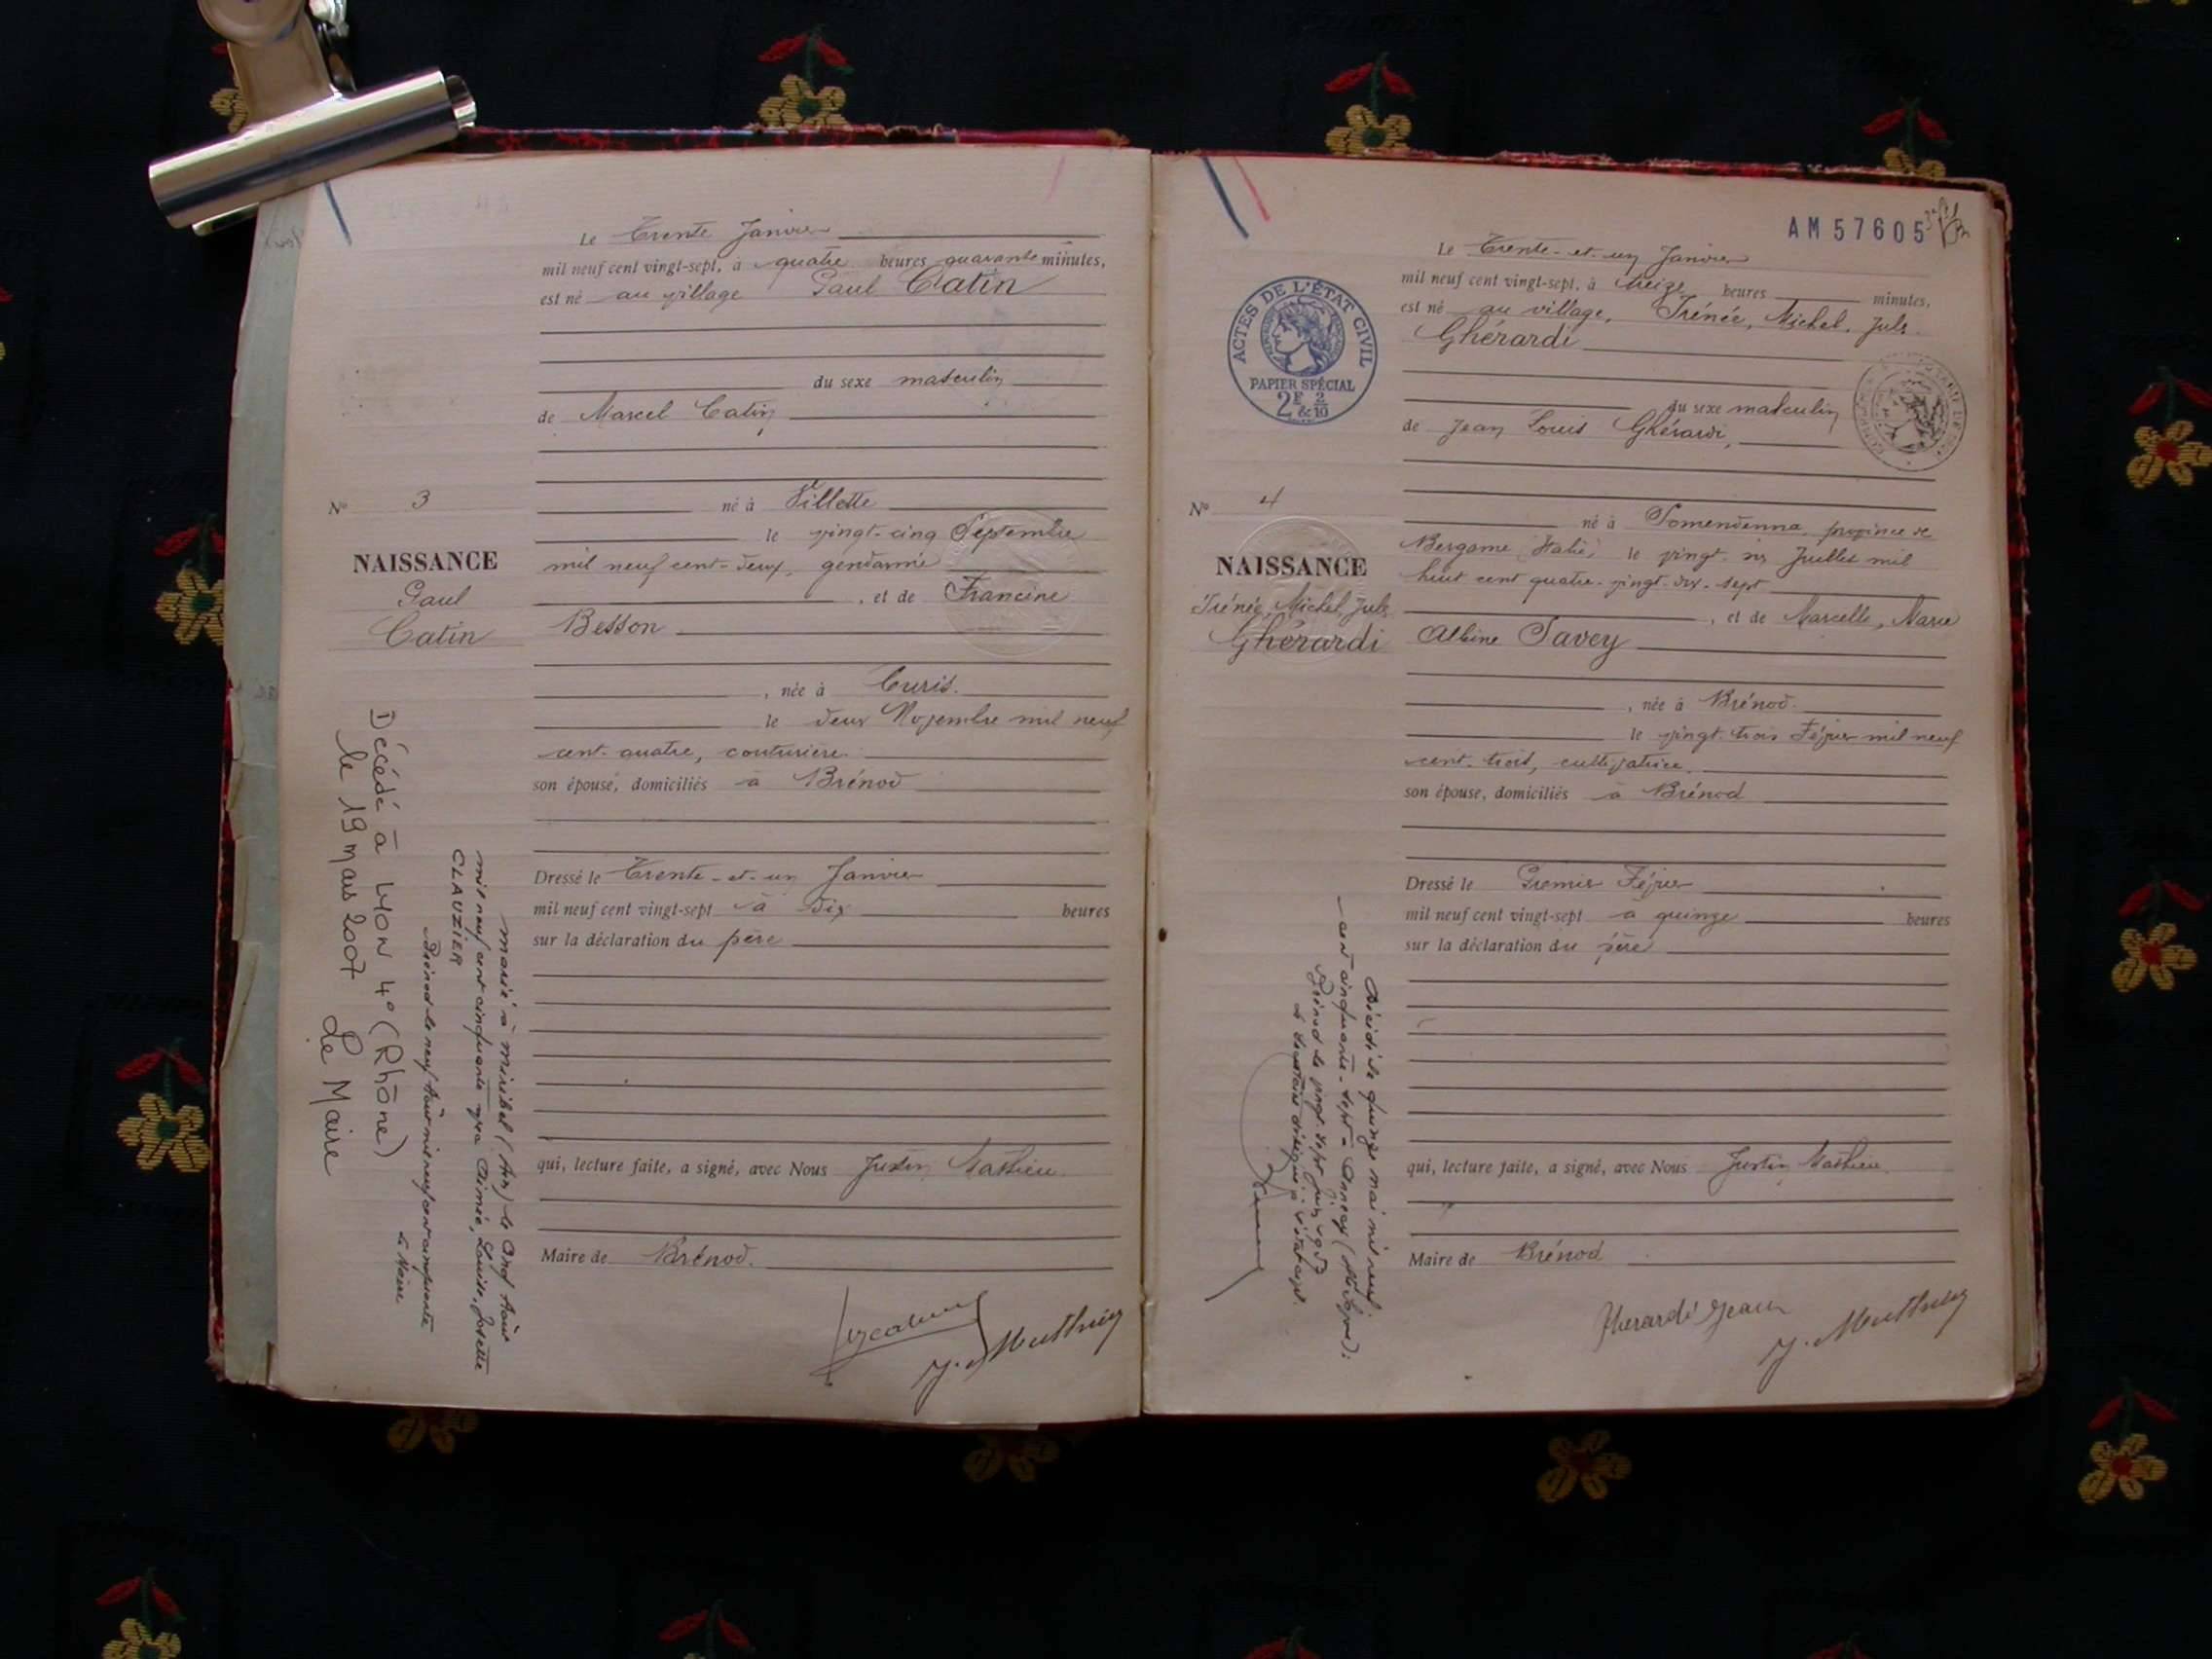 Le Trente Janvier
mil neuf cent vingt-sept, à quatre heures quarante minutes,
est né au village Paul Catin
du sexe masculin
de Marcel Catin
né à Villette
le vingt-cinq Septembre
mil neuf cent-deux, gendarme
, et de Francine
Besson
, née à Curis.
le deux Novembre mil neuf
cent-quatre, couturière
son épouse, domiciliés à Brénod
Dressé le Trente-et-un Janvier
mil neuf cent vingt-sept à dix heures
sur la déclaration du père
qui, lecture faite, a signé, avec Nous Justin Mathieu.
Maire de Brénod.
J. Mathieu
No 3
NAISSANCE
Paul
Catin
Décédé à LYON 4° (Rhône)
le 19 Mars 2007 Le Maire
marié à Miribel (Ain) le cinq Août
mil neuf cent cinquante avec Aimée, Louise, Josette
CLAUZIER
Brénod le neuf Août mil neuf cent cinquante
Le Maire
AM 57605
Le Trente-et-un Janvier
mil neuf cent vingt-sept, à treize heures minutes,
est né au village, Irénée, Michel, Juls
Ghérardi
du sexe masculin
de Jean Louis Ghérardi,
né à province de
Bergame (Italie) le vingt-six Juillet mil
huit cent quatre-vingt-dix-sept
, et de Marcelle, Marie
Albine Savey
, née à Brénod
le vingt-trois Février mil neuf
cent-trois, cultivatrice,
son épouse, domiciliés à Brénod
Dressé le Premier Février
mil neuf cent vingt-sept à quinze heures
sur la déclaration du père
qui, lecture faite, a signé, avec Nous Justin Mathieu.
Maire de Brénod
Gherardi Jean
J. Mathieu
ACTES DE L'ÉTAT CIVIL
PAPIER SPÉCIAL
2F 2/10
&
No 4
NAISSANCE
Irénée, Michel, Juls
Ghérardi
Décédé le quinze mai mil neuf
cent cinquante-sept à Annecy (Hte Savoie):
Brénod le vingt sept Juin 1957
Le secrétaire délégué à l'état civil.